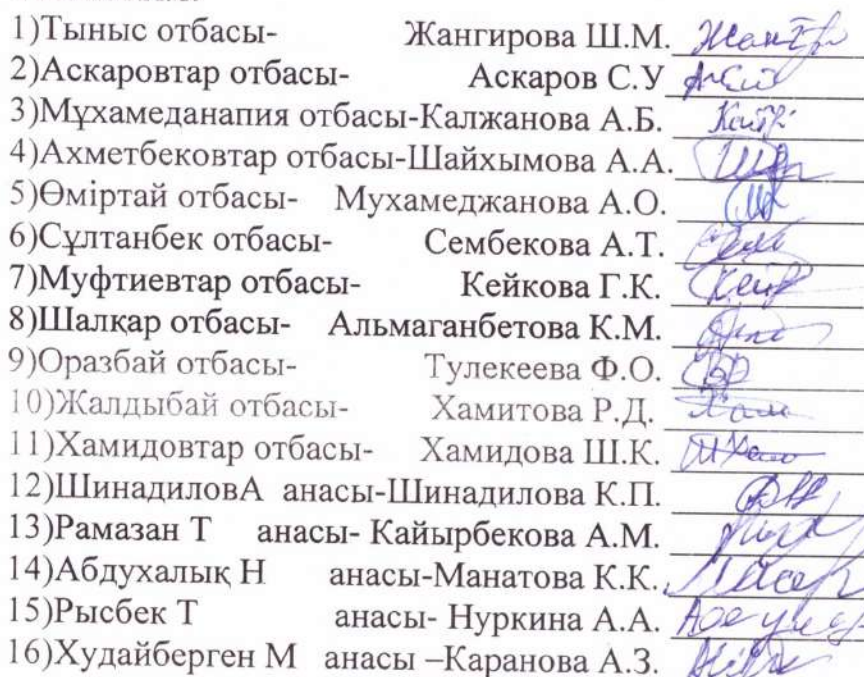 1)Тыныс отбасы- Жангирова Ш.М.
2)Аскаровтар отбасы- Аскаров С.У
3)Мұхамеданапия отбасы-Калжанова А.Б.
4)Ахметбековтар отбасы-Шайхымова А.А.
5)Өміртай отбасы- Мухамеджанова А.О.
6)Сұлтанбек отбасы- Сембекова А.Т.
7)Муфтиевтар отбасы- Кейкова Г.К.
8)Шалқар отбасы- Альмаганбетова К.М.
9)Оразбай отбасы- Тулекеева Ф.О.
10)Жалдыбай отбасы- Хамитова Р.Д.
11)Хамидовтар отбасы- Хамидова Ш.К.
12)ШинадиловА анасы-Шинадилова К.П.
13)Рамазан Т анасы- Кайырбекова А.М.
14)Абдухалық Н анасы-Манатова К.К.
15)Рысбек Т анасы- Нуркина А.А.
16)Худайберген М анасы –Каранова А.З.